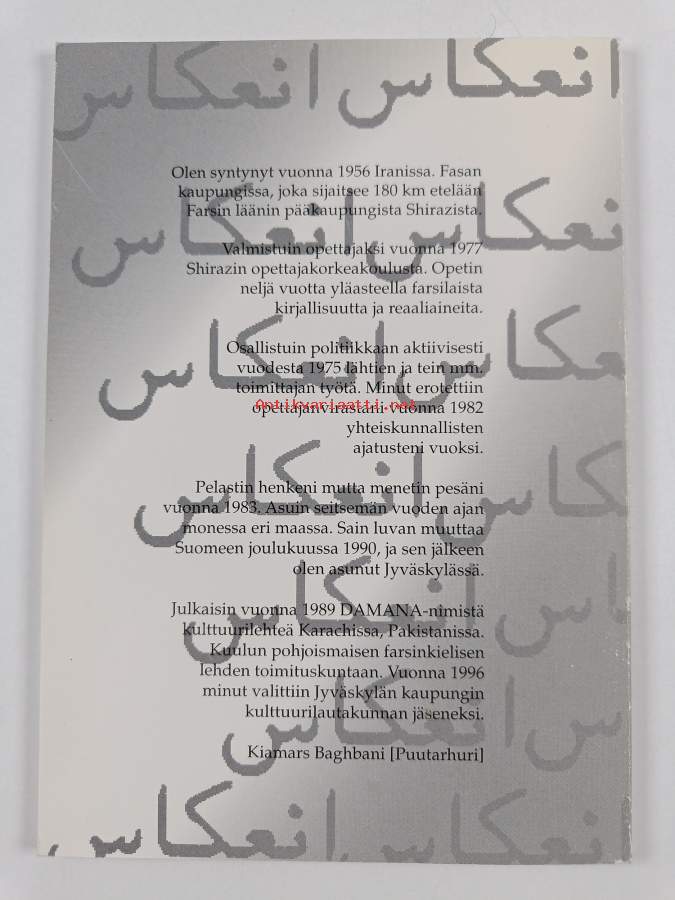 انعکاس انعکاس
Olen syntynyt vuonna 1956 Iranissa. Fasan
kaupungissa, joka sijaitsee 180 km etelään
Farsin läänin pääkaupungista Shirazista.
انعکاس انعکاس
Valmistuin opettajaksi vuonna 1977
Shirazin opettajakorkeakoulusta. Opetin
neljä vuotta yläasteella farsilaista
kirjallisuutta ja reaaliaineita.
انعکاس انعکاس
Osallistuin politiikkaan aktiivisesti
vuodesta 1975 lähtien ja tein mm.
toimittajan työtä. Minut erotettiin
Antikvariaatti.net
opettajanvirastani vuonna 1982
yhteiskunnallisten
ajatusteni vuoksi.
انعکاس انعکاس
Pelastin henkeni mutta menetin pesäni
vuonna 1983. Asuin seitsemän vuoden ajan
monessa eri maassa. Sain luvan muuttaa
Suomeen joulukuussa 1990, ja sen jälkeen
olen asunut Jyväskylässä.
انعکاس انعکاس
Julkaisin vuonna 1989 DAMANA-nimistä
kulttuurilehteä Karachissa, Pakistanissa.
Kuulun pohjoismaisen farsinkielisen
lehden toimituskuntaan. Vuonna 1996
minut valittiin Jyväskylän kaupungin
kulttuurilautakunnan jäseneksi.
انعکاس انعکاس
Kiamars Baghbani [Puutarhuri]
انعکاس انعکاس